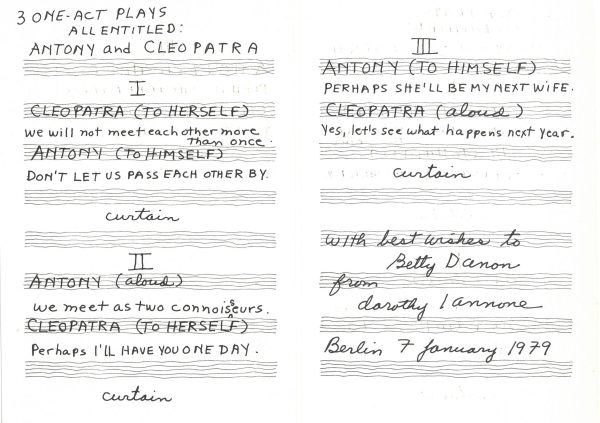 3 ONE-ACT PLAYS
ALL ENTITLED:
ANTONY and CLEOPATRA
I
CLEOPATRA (TO HERSELF)
we will not meet each other more
than once.
ANTONY (TO HIMSELF)
DON'T LET US PASS EACH OTHER BY.
curtain
II
ANTONY (aloud)
we meet as two connoisseurs.
CLEOPATRA (TO HERSELF)
Perhaps I'LL HAVE YOU ONE DAY.
curtain
III
ANTONY (TO HIMSELF)
PERHAPS SHE'LL BE MY NEXT WIFE.
CLEOPATRA (aloud)
Yes, let's see what happens next year.
curtain
with best wishes to
Betty Danon
from
dorothy Iannone
Berlin 7 january 1979